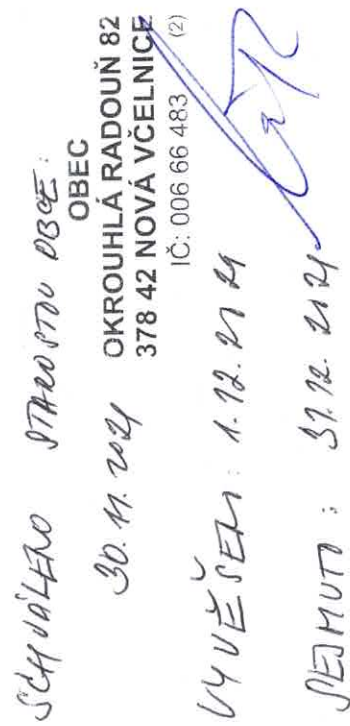 SCHVÁLENO STAROSTOU OBCE:
30. 11. 2024
OBEC
OKROUHLÁ RADOUŇ 82
378 42 NOVÁ VČELNICE
IČ: 006 66 483 (2)
VYVĚŠENO: 1. 12. 2024
SEJMUTO: 31. 12. 2024